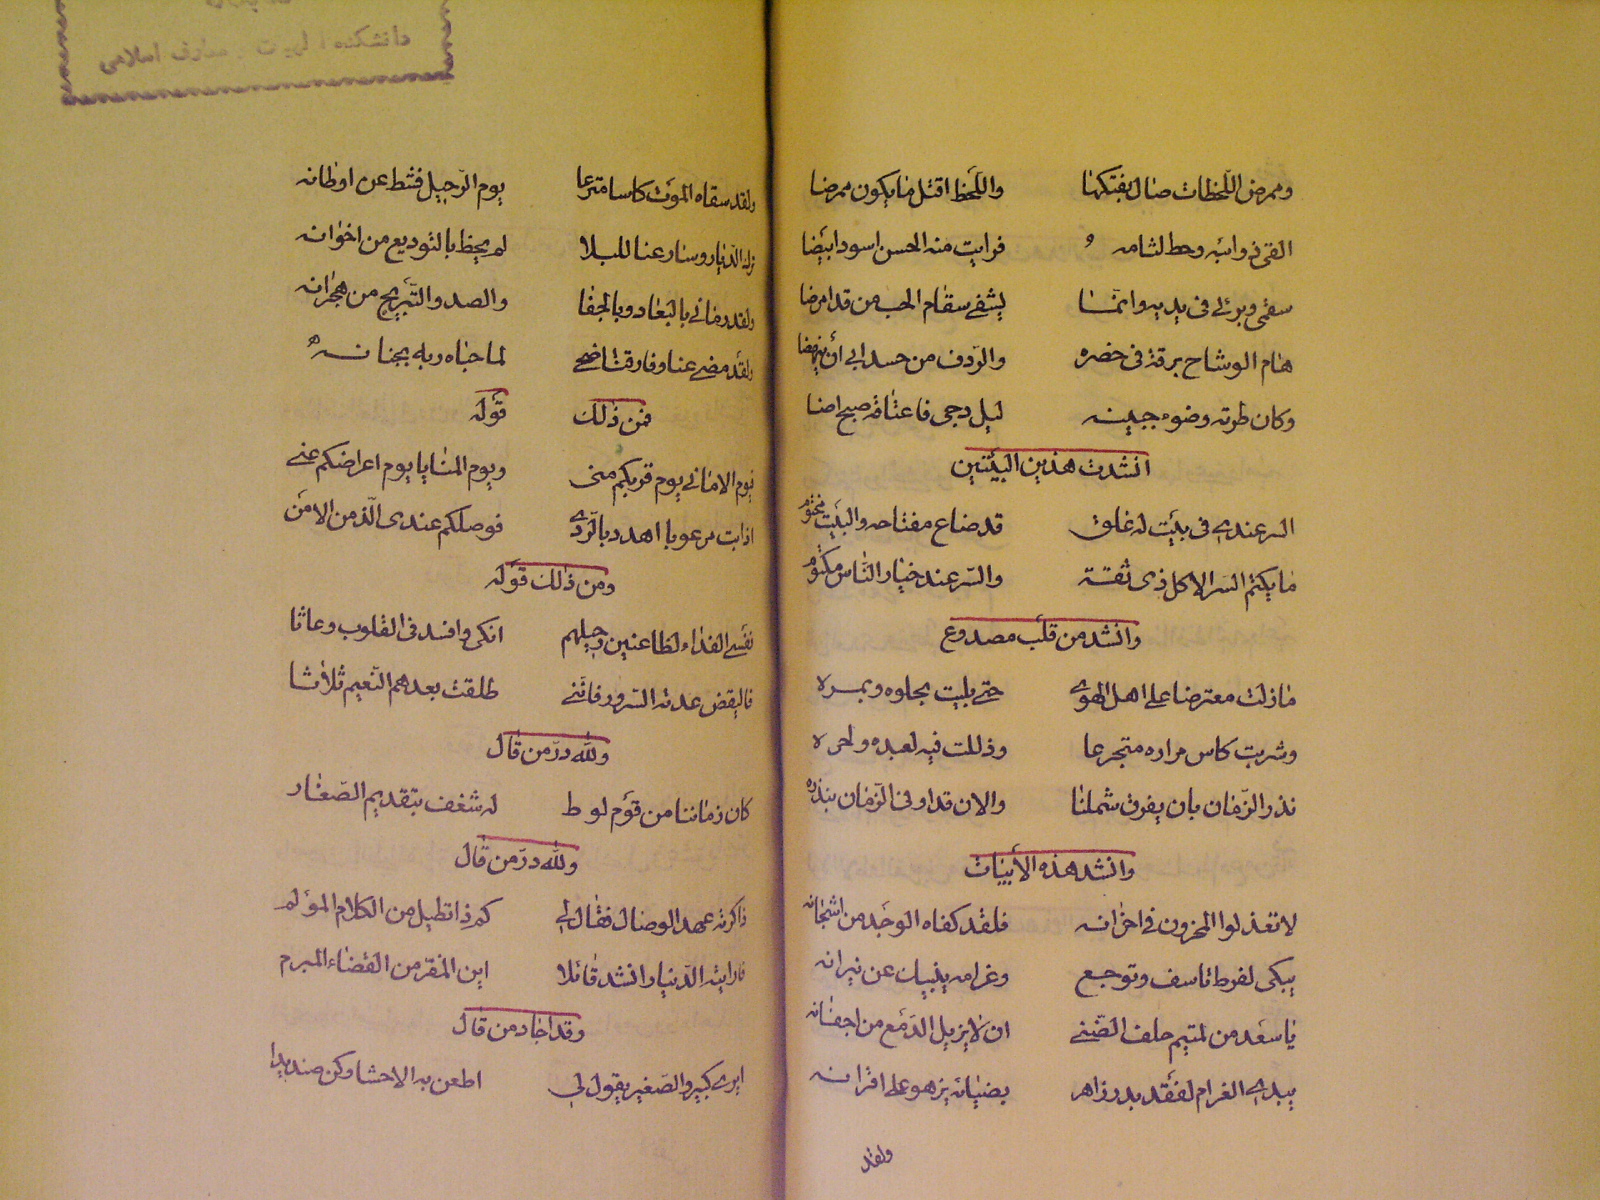 وممرض اللّحظات صال بفتكها واللّحظ اقتل ما يكون ممرضا
القى ذوائبه وحط لثامه فرايت منه الحسن اسود ابيضا
سقمى وبرئى فى يديه وانّما يشفى سقام الحب من قد امرضا
هام الوشاح برقة فى خصره والرّدف من حسد ابى ان ينهضا
وكان طرته وضوء جبينه ليل دجى فاعتاقه صبح اضا
انشدت هذين البيتين
السر عندى فى بيت له غلق قد ضاع مفتاحه والبيت مختوم
ما يكتم السّر الا كل ذى ثقة والسّر عند خيار النّاس مكتوم
وانشد من قلب مصدوع
ما زلت معترضا على اهل الهوى حتى بليت بحلوه وبمره
وشربت كاس مراره متجرعا وذللت فيه لعبده ولحره
نذر الزّمان بان يفرق شملنا والان قد اوفى الزّمان بنذره
وانشد هذه الأبيات
لا تعذلوا المحزون فى احزانه فلقد كفاه الوجد من اشجانه
يبكى لفرط تاسف وتوجع وغرامه ينبيك عن نيرانه
يا سعد من لمتيم حلف الضّنى ان لا يزيل الدّمع من اجفانه
يبدى الغرام لفقد بدر زاهر بضيائه يزهو على اقرانه
ولقد
ولقد سقاه الموت كاسا مترعا يوم الرّحيل فشط عن اوطانه
ترك الدّيار وسار عنا للبلا لم يحظ بالتوديع من اخوانه
ولقد رمانى بالبعاد وبالجفا والصد والتّبريح من هجرانه
ولقد مضى عنا وفارقنا ضحى لما حباه ربه بجنانه
فمن ذلك قوله
فيوم الامانى يوم قربكم منى ويوم المنايا يوم اعراضكم عنى
اذا بت مرعوبا اهدد بالرّدى فوصلكم عندى الّذ من الامن
ومن ذلك قوله
نفسى الفداء لظاعنين رحيلهم انكى وافسد فى القلوب وعاثا
فاليقض عدته السّرور فانّنى طلقت بعدهم النّعيم ثلاثا
ولله درّ من قال
كان زماننا من قوم لوط له شغف بتقديم الصّغار
ولله درّ من قال
ذاكرته عهد الوصال فقال لى كم ذا تطيل من الكلام المؤلم
فارايته الدّينار انشد قائلا اين المفرّ من القضاء المبرم
وقد اجاد من قال
ايرى كبير والصّغير يقول لى اطعن به الاحشا وكن صنديدا
دانشكده الهيات و معارف اسلامى